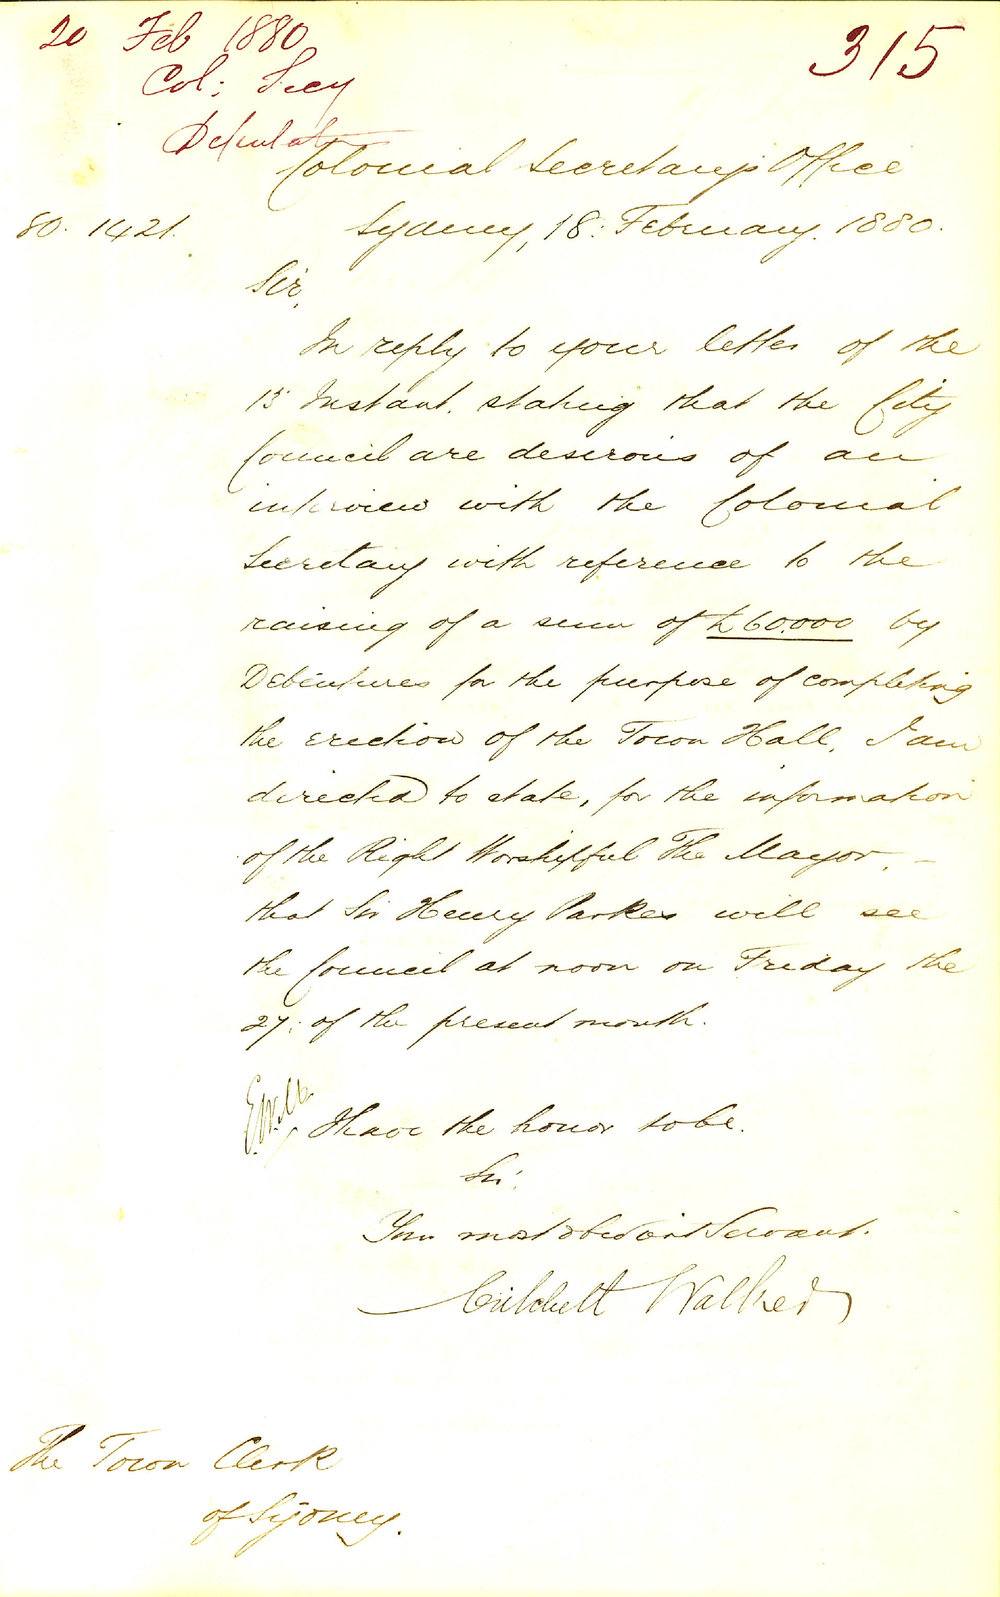 20 Feb 1880
315
Col: Secy
Deputat
Colonial Secretary's Office
80. 1421.
Sydney, 18: February. 1880.
Sir,
In reply to your letter of the
13 Instant. stating that the City
Council are desirous of an
interview with the Colonial
Secretary with reference to the
raising of a sum of £60.000 by
Debentures for the purpose of completing
the erection of the Town Hall, I am
directed to state, for the information
of the Right Worshipful The Mayor, –
that Sir Henry Parkes will see
the Council at noon on Friday the
27: of the present month.
I have the honor to be.
Sir,
Your most obedient Servant.
Critchett Walker
The Town Clerk
of Sydney.